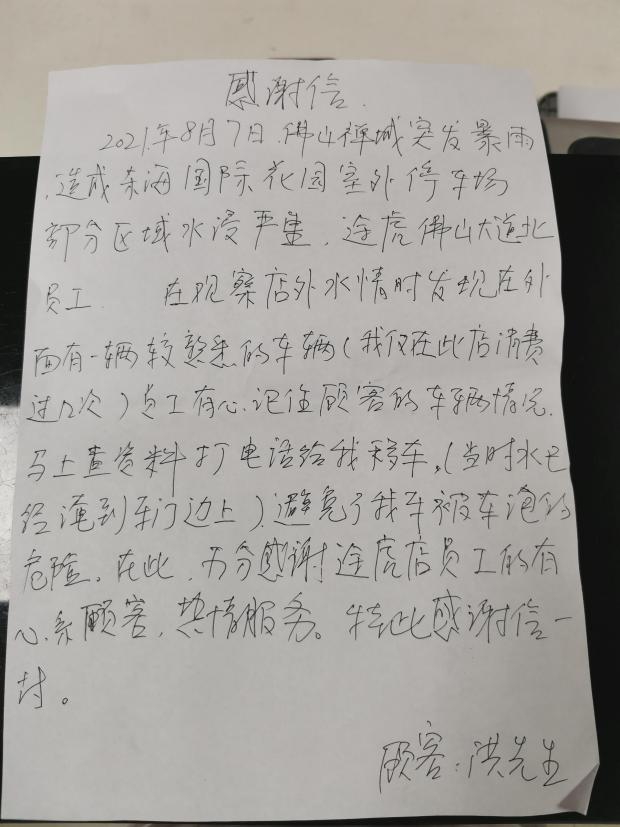 感谢信.
2021.年8月7日.佛山禅城突发暴雨
.造成东海国际花园室外停车场
部分区域水浸严重.途虎佛山大道北
员工 在观察店外水情时发现在外
面有一辆较熟悉的车辆(我仅在此店消费
过几次)员工有心.记住顾客的车辆情况.
马上查资料打电话给我移车,(当时水已
经淹到车门边上).避免了我车被车泡的
危险.在此,万分感谢途虎店员工的有
心.系顾客,热情服务。特此感谢信一
封。
顾客:洪先生